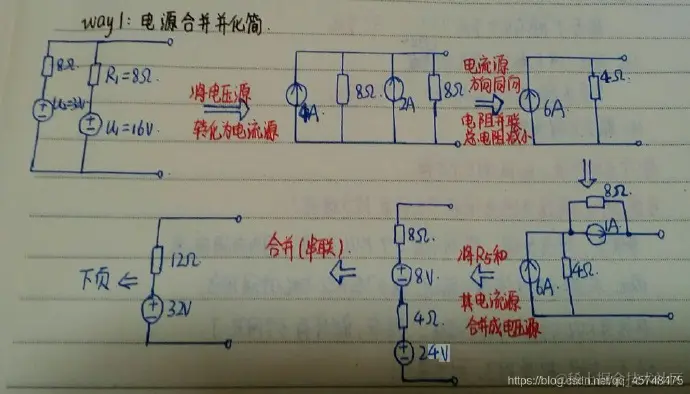 way1: 电源合并并化简.
8Ω
R₁=8Ω
U₂=32V
U₁=16V
将电压源
转化为电流源
4A
8Ω
2A
8Ω
电流源
方向同向
电阻并联
总电阻减小
6A
4Ω
8Ω
1A
6A
4Ω
将R5和
其电流源
合并成电压源
8Ω
8V
4Ω
24V
合并(串联).
12Ω
32V
下页
https://blog.csdn.net/qq_45748475
@稀土掘金技术社区